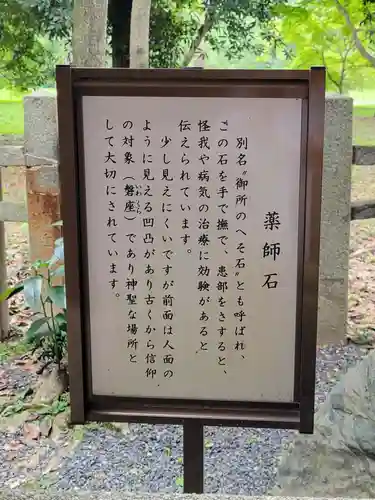 薬師石
別名〝御所のへそ石〟とも呼ばれ、
この石を手で撫で、患部をさすると、
怪我や病気の治療に効験があると
伝えられています。
少し見えにくいですが前面は人面の
ように見える凹凸があり古くから信仰
の対象（磐座）であり神聖な場所と
して大切にされています。